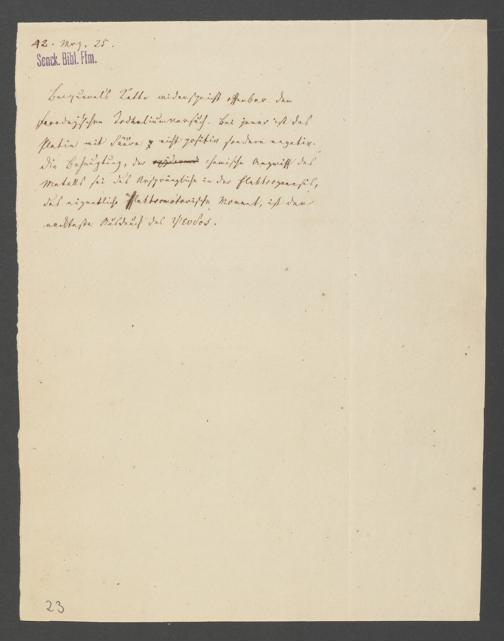 42. Mrz. 25.
Senck. Bibl. Ffm.
Becquerels Kette widerspricht offenbar den
Faradayschen Jodkaliumversuch. Bei jener ist das
Platin mit Säure nicht positiv sondern negativ.
Die Behauptung, der chemische Angriff des
Metalls sei das Ursprüngliche in der Elektrogenesis,
das eigentliche Elektromotorische Moment, ist der
nackteste Ausdruck des
23